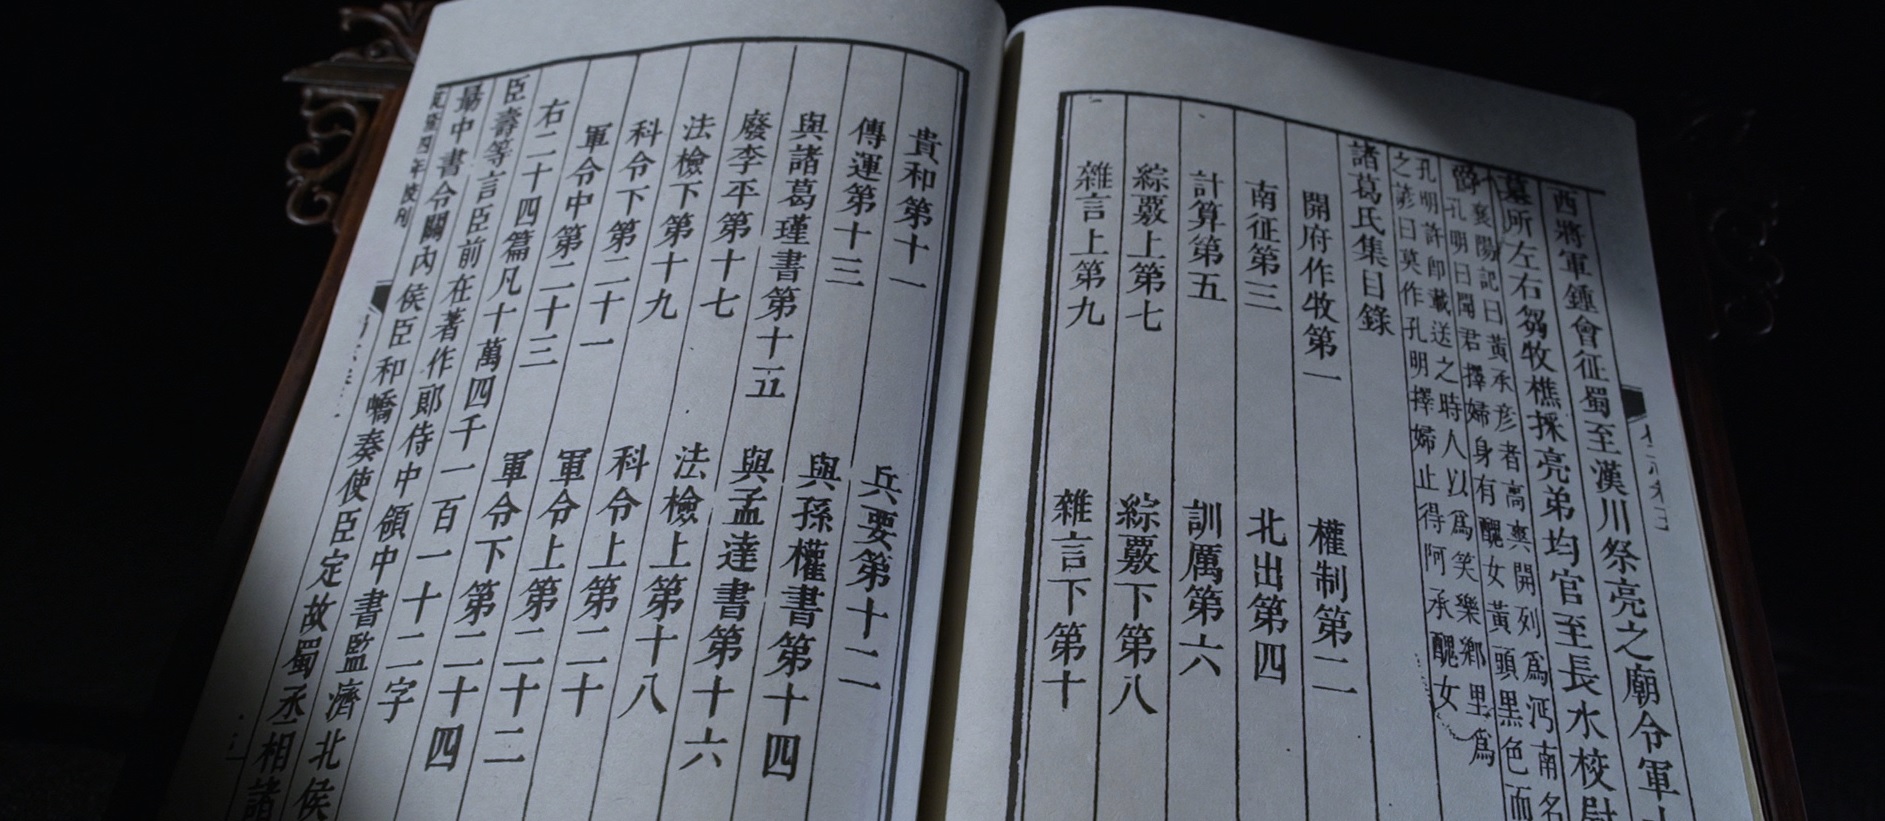 西將軍鍾會征蜀至漢川祭亮之廟令軍
墓所左右芻牧樵採亮弟均官至長水校尉
襄陽記曰黃承彥者高爽開列爲沔南名
爵
孔明曰聞君擇婦身有醜女黃頭黑色而
孔明許卽載送之時人以爲笑樂鄉里爲
之諺曰莫作孔明擇婦止得阿承醜女
諸葛氏集目錄
開府作牧第一 權制第二
南征第三 北出第四
計算第五 訓厲第六
綜覈上第七 綜覈下第八
雜言上第九 雜言下第十
貴和第十一 兵要第十二
傳運第十三 與孫權書第十四
與諸葛瑾書第十五 與孟達書第十六
廢李平第十七 法檢上第十八
法檢下第十九 科令上第二十
科令下第二十一 軍令上第二十二
軍令中第二十三 軍令下第二十四
右二十四篇凡十萬四千一百一十二字
臣壽等言臣前在著作郎侍中領中書監濟北侯
臣荀
勗中書令關內侯臣和嶠奏使臣定故蜀丞相諸
四年校刊